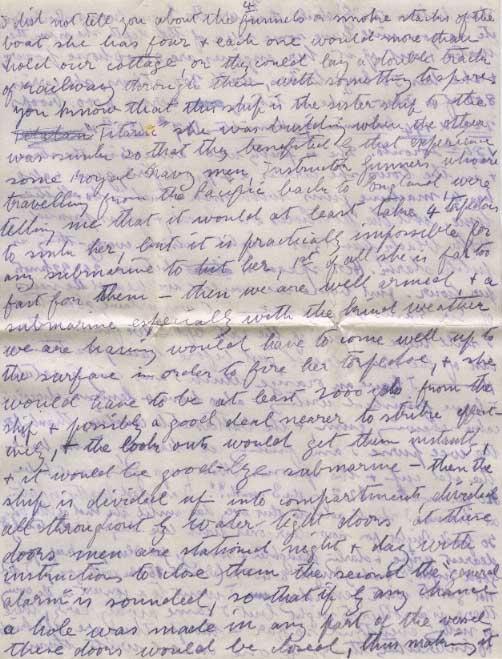 4
I did not tell you about the funnels or smoke stacks of the
boat she has four + each one would more than
hold our cottage or they could lay a double track
of railway through them with something to spare
you know that this ship is the sister ship of the
"Titanic" she was building when the other
was sunk so that they benefited by that experience
some Royal Navy men, Instructor Gunners who are
travelling from the Pacific back to England were
telling me that it would at least take 4 torpedoes
to sink her, but it is practically impossible for
any submarine to hit her, 1st of all she is far too
fast for them - then we are well armed, + a
submarine especially with the weather
we are having would have to come well up to
the surface in order to fire her torpedoe, + she
would have to be at least 2000 yds from the
ship + possibly a good deal nearer to strike effect-
ively, + the look outs would get them instantly,
+ it would be good-bye submarine - then the
ship is divided up into compartments divided
all throughout by water-tight doors, at these
doors men are stationed night + day with
instructions to close them the second the "general
alarm" is sounded, so that if by any chance
a hole was made in any part of the vessel
these doors would be closed, thus making it